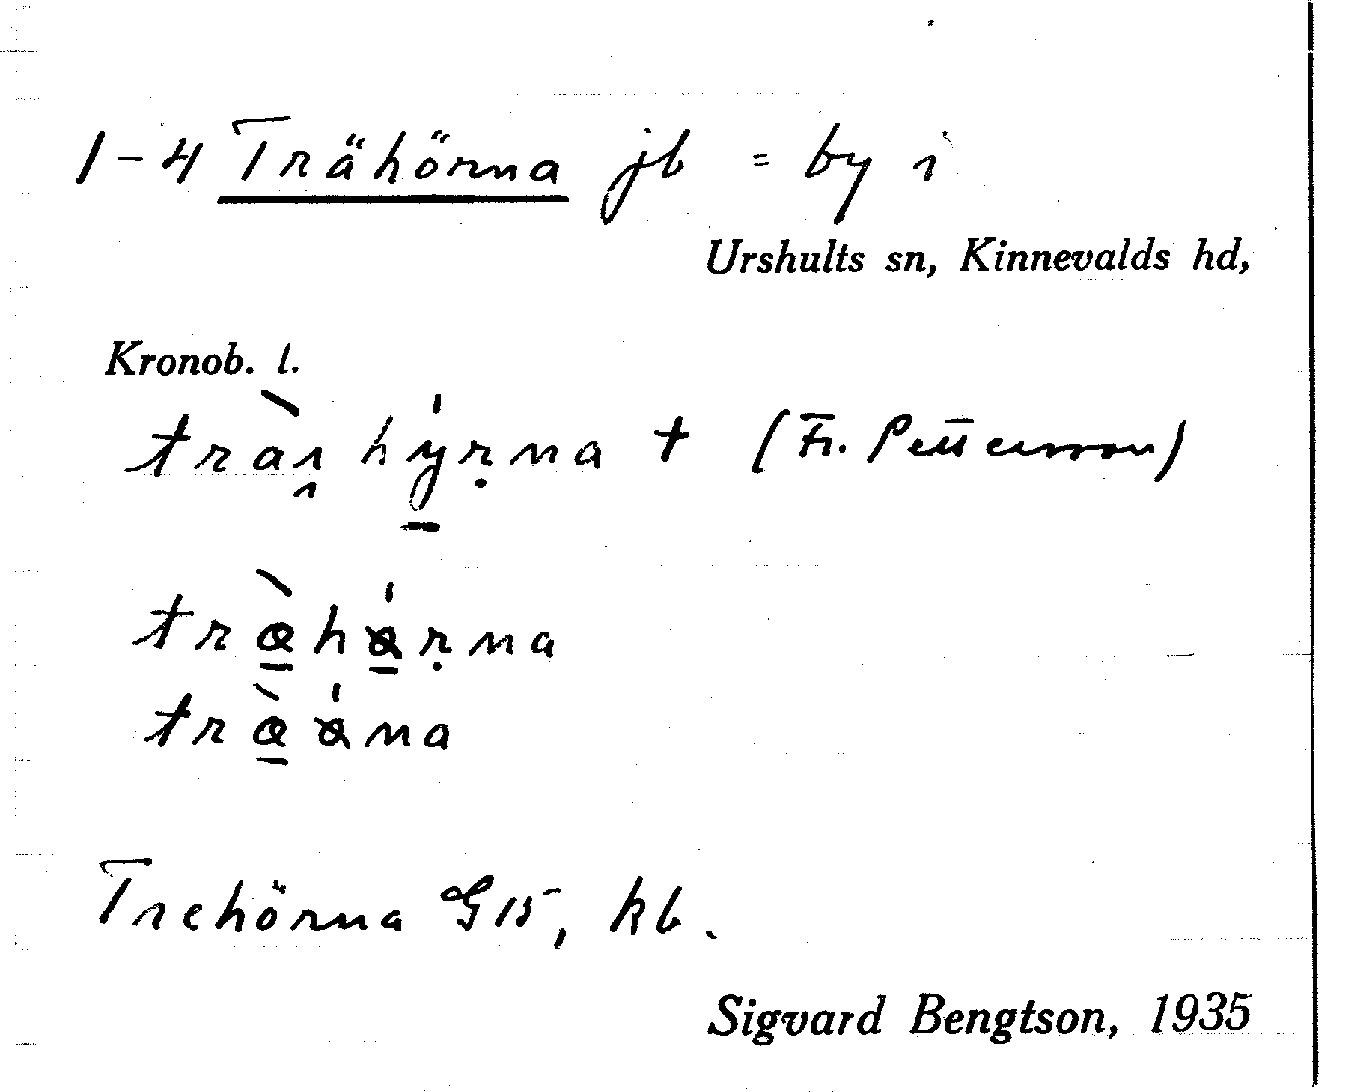 1-4 Trähörna jb = by i
Urshults sn, Kinnevalds hd,
Kronob. l.
tràı̯hý̱ṛna † (Fr. Petterson)
trə̱̀hɵ̱́ṛna
trə̱̀ɵ́na
Trehörna G15, kb.
Sigvard Bengtson, 1935